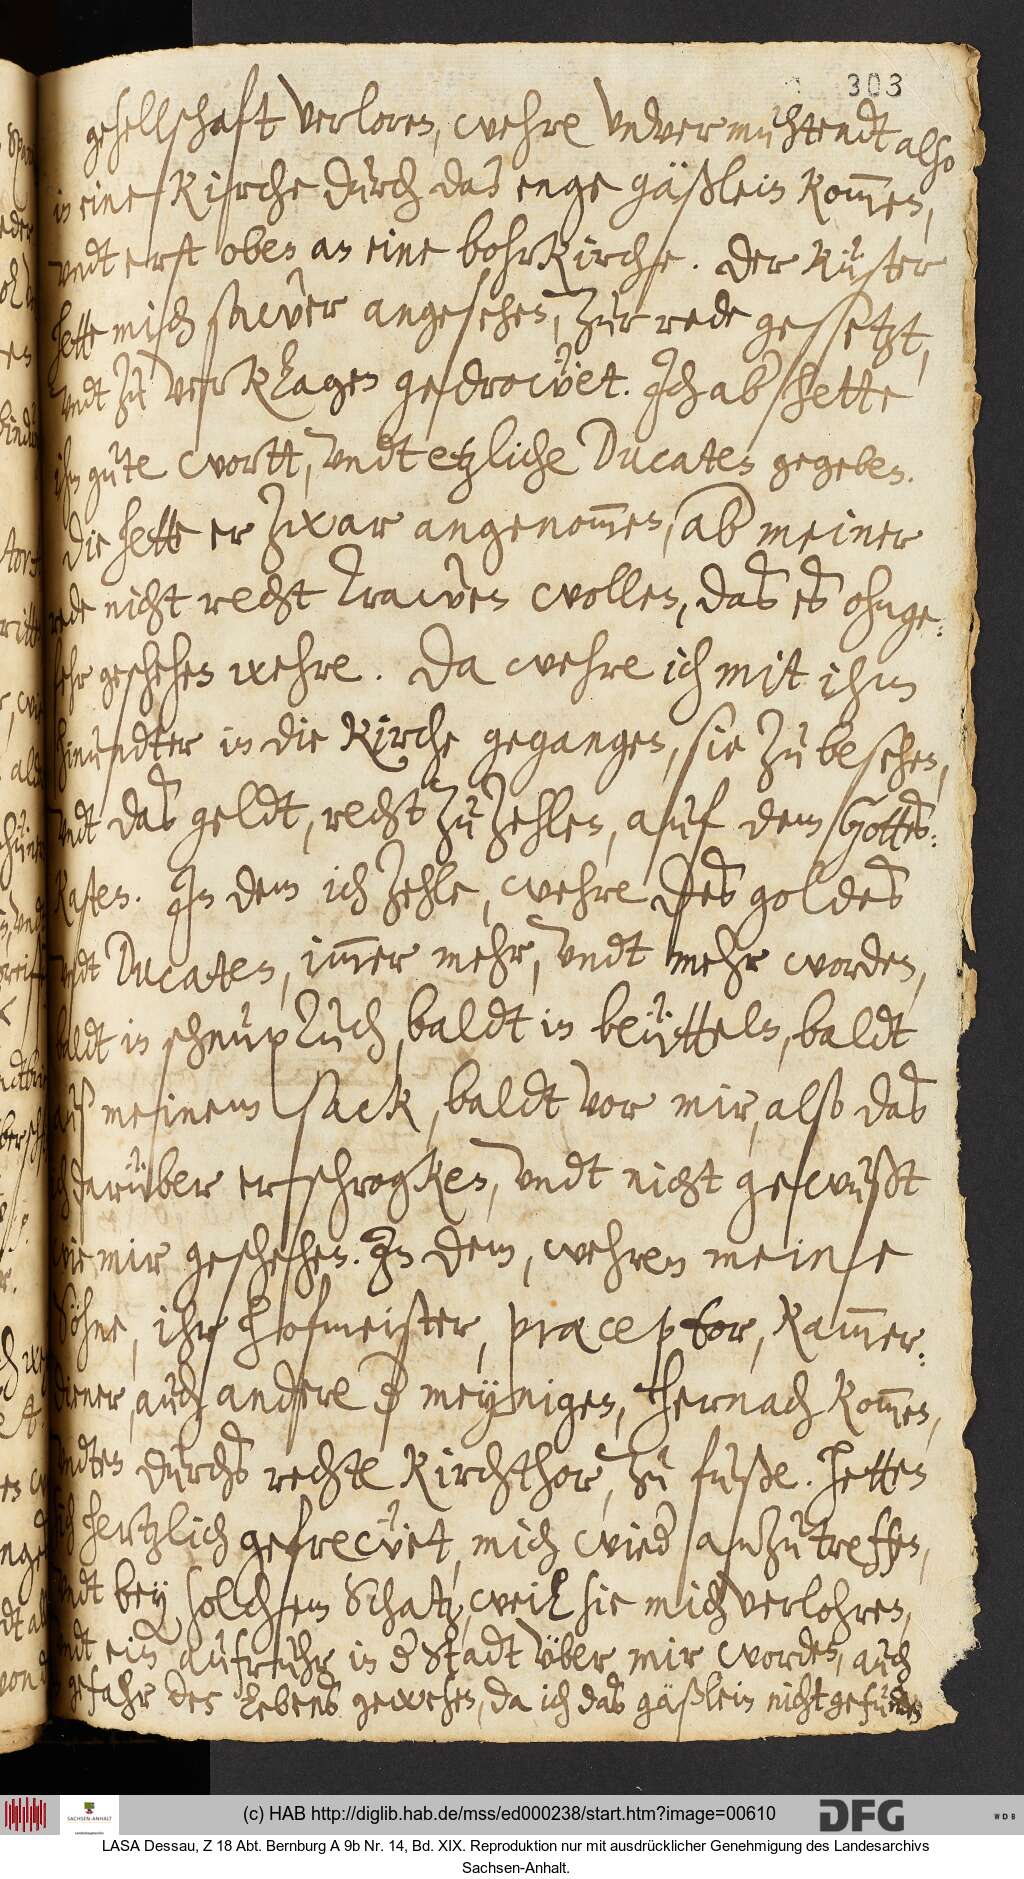 303
gesellschaft verloren, wehre vndvermuhtendt also
in eine Kirche durch das enge gäßlein kom̅en,
vndt erst oben an eine bohrkirche. Der Küster
hette mich sawer angesehen, zur rede gesetzt,
vndt zu verklagen gedrowet. Ich aber hette
ihm gute wortt, vndt etzliche Ducaten gegeben.
Die hette er zwar angenom̅en, aber meiner
rede nicht recht trawen wollen, das es ohnge:
fehr geschehen wehre. Da wehre ich mit ihm
hinundter in die Kirche gegangen, sie zu besehen,
vndt das geldt, recht zu zehlen, auf dem Gottes:
Kasten. In dem ich zehle, wehre des goldes
vndt Ducaten, im̅er mehr, vndt mehr worden,
baldt in schnuptuch, baldt in beütteln, baldt
auß meinem sack, baldt vor mir, also das
ich darüber erschrogken, vndt nicht gewust
wie mir geschehen. In dem, wehren meine
Söhne, ihr hofmeister, præceptor, Kam̅er:
diener, auch andere der meynigen, hernach kom̅en,
vndten durchs rechte Kirchthor, zu fuße. Hetten
sich hertzlich gefrewet, mich wieder anzutreffen,
vndt bey solchem Schatz, weil sie mich verlohren,
vndt ein aufruhr in der Stadt vber mir worden, auch
gefahr des lebens gewesen, da ich das gäßlein nicht gefunden
(c) HAB http://diglib.hab.de/mss/ed000238/start.htm?image=00610
SACHSEN-ANHALT
DFG
WDB
LASA Dessau, Z 18 Abt. Bernburg A 9b Nr. 14, Bd. XIX. Reproduktion nur mit ausdrücklicher Genehmigung des Landesarchivs
Sachsen-Anhalt.